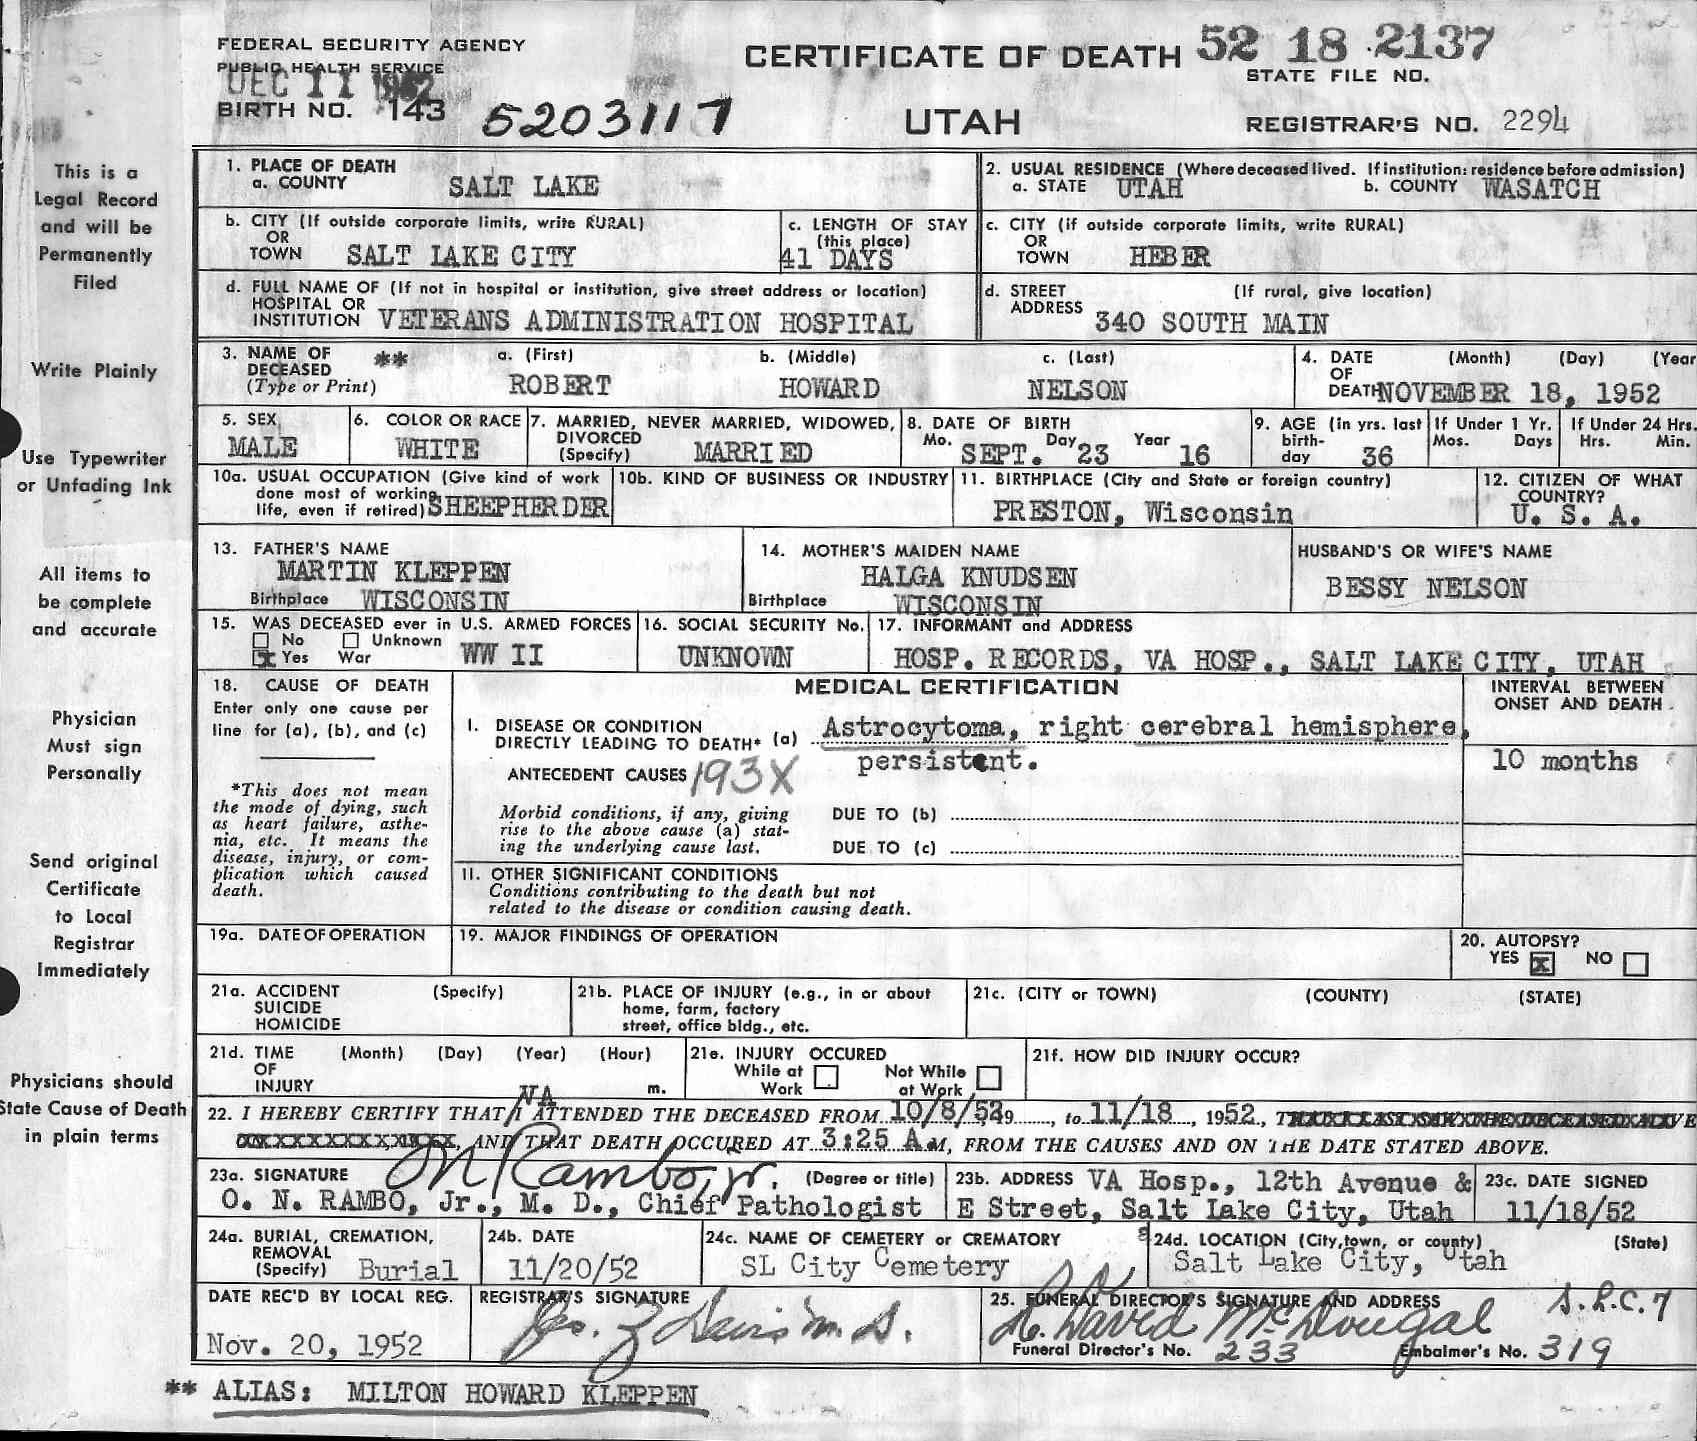 FEDERAL SECURITY AGENCY
PUBLIC HEALTH SERVICE
DEC 11 1952
BIRTH NO. 143
5203117
CERTIFICATE OF DEATH
UTAH
52 18 2137
STATE FILE NO.
REGISTRAR'S NO. 2294
This is a
Legal Record
and will be
Permanently
Filed
Write Plainly
Use Typewriter
or Unfading Ink
All items to
be complete
and accurate
Physician
Must sign
Personally
Send original
Certificate
to Local
Registrar
Immediately
Physicians should
State Cause of Death
in plain terms
1. PLACE OF DEATH
a. COUNTY SALT LAKE
2. USUAL RESIDENCE (Where deceased lived. If institution: residence before admission)
a. STATE UTAH b. COUNTY WASATCH
b. CITY (If outside corporate limits, write RURAL)
OR
TOWN SALT LAKE CITY
c. LENGTH OF STAY
(this place)
41 DAYS
c. CITY (if outside corporate limits, write RURAL)
OR
TOWN HEBER
d. FULL NAME OF (If not in hospital or institution, give street address or location)
HOSPITAL OR
INSTITUTION VETERANS ADMINISTRATION HOSPITAL
d. STREET (If rural, give location)
ADDRESS 340 SOUTH MAIN
3. NAME OF DECEASED (Type or Print) **
a. (First) b. (Middle) c. (Last)
ROBERT HOWARD NELSON
4. DATE OF DEATH (Month) (Day) (Year
NOVEMBER 18, 1952
5. SEX
MALE
6. COLOR OR RACE
WHITE
7. MARRIED, NEVER MARRIED, WIDOWED,
DIVORCED
(Specify) MARRIED
8. DATE OF BIRTH
Mo. Day Year
SEPT. 23 16
9. AGE (in yrs. last
birth-
day 36
If Under 1 Yr.
Mos. Days
If Under 24 Hrs.
Hrs. Min.
10a. USUAL OCCUPATION (Give kind of work
done most of working
life, even if retired) SHEEPHERDER
10b. KIND OF BUSINESS OR INDUSTRY
11. BIRTHPLACE (City and State or foreign country)
PRESTON, Wisconsin
12. CITIZEN OF WHAT
COUNTRY?
U. S. A.
13. FATHER'S NAME
MARTIN KLEPPEN
Birthplace WISCONSIN
14. MOTHER'S MAIDEN NAME
HALGA KNUDSEN
Birthplace WISCONSIN
HUSBAND'S OR WIFE'S NAME
BESSY NELSON
15. WAS DECEASED ever in U.S. ARMED FORCES
No Unknown
x Yes War WW II
16. SOCIAL SECURITY No.
UNKNOWN
17. INFORMANT and ADDRESS
HOSP. RECORDS, VA HOSP., SALT LAKE CITY, UTAH
18. CAUSE OF DEATH
Enter only one cause per
line for (a), (b), and (c)
*This does not mean
the mode of dying, such
as heart failure, asthe-
nia, etc. It means the
disease, injury, or com-
plication which caused
death.
MEDICAL CERTIFICATION
INTERVAL BETWEEN
ONSET AND DEATH
I. DISEASE OR CONDITION
DIRECTLY LEADING TO DEATH* (a) Astrocytoma, right cerebral hemisphere,
persistent.
10 months
ANTECEDENT CAUSES 193X
Morbid conditions, if any, giving
rise to the above cause (a) stat-
ing the underlying cause last.
DUE TO (b)
DUE TO (c)
II. OTHER SIGNIFICANT CONDITIONS
Conditions contributing to the death but not
related to the disease or condition causing death.
19a. DATE OF OPERATION
19. MAJOR FINDINGS OF OPERATION
20. AUTOPSY?
YES x NO
21a. ACCIDENT (Specify)
SUICIDE
HOMICIDE
21b. PLACE OF INJURY (e.g., in or about
home, farm, factory
street, office bldg., etc.
21c. (CITY or TOWN) (COUNTY) (STATE)
21d. TIME (Month) (Day) (Year) (Hour)
OF
INJURY m.
21e. INJURY OCCURED
While at Work Not While at Work
21f. HOW DID INJURY OCCUR?
VA
22. I HEREBY CERTIFY THAT I ATTENDED THE DECEASED FROM 10/8/52, to 11/18, 1952,
AND THAT DEATH OCCURED AT 3:25 A.M, FROM THE CAUSES AND ON THE DATE STATED ABOVE.
23a. SIGNATURE ON Rambo, Jr. (Degree or title)
O. N. RAMBO, Jr., M. D., Chief Pathologist
23b. ADDRESS VA Hosp., 12th Avenue &
E Street, Salt Lake City, Utah
23c. DATE SIGNED
11/18/52
24a. BURIAL, CREMATION,
REMOVAL
(Specify) Burial
24b. DATE
11/20/52
24c. NAME OF CEMETERY or CREMATORY
SL City Cemetery
24d. LOCATION (City, town, or county) (State)
Salt Lake City, Utah
DATE REC'D BY LOCAL REG.
Nov. 20, 1952
REGISTRAR'S SIGNATURE
25. FUNERAL DIRECTOR'S SIGNATURE AND ADDRESS
David McDougal
S.L.C. 7
Funeral Director's No. 233 Embalmer's No. 319
** ALIAS: MILTON HOWARD KLEPPEN